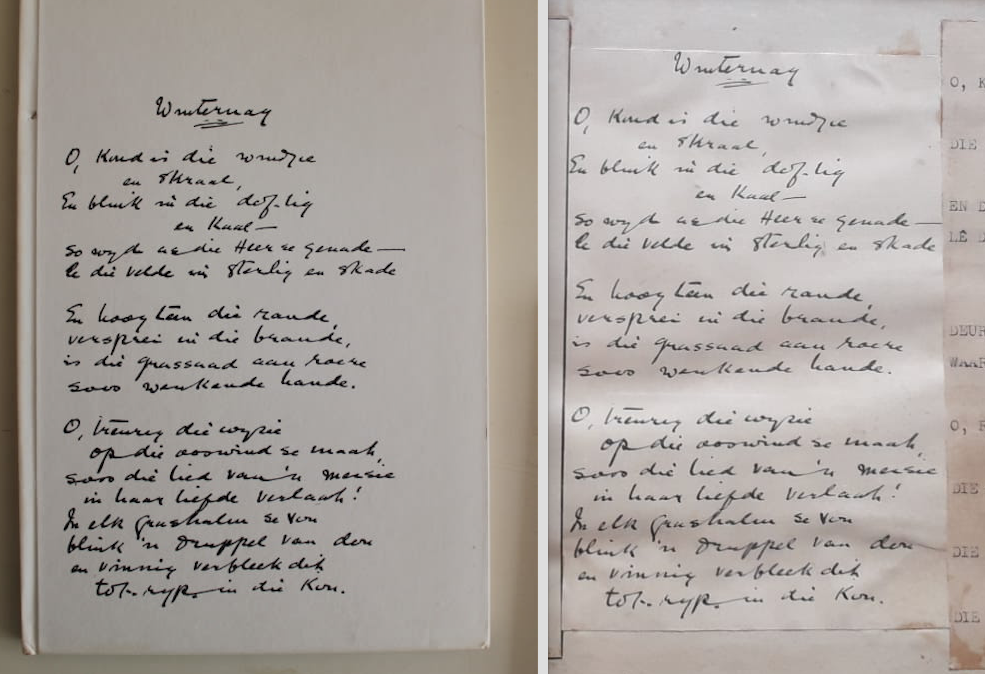 Winternag
O, Koud is die windjie
en skraal,
En blink in die dof-lig
en Kaal—
so wyd as die Heer se genade—
lê die velde in sterlig en skade
En hoog teen die rande,
versprei in die brande,
is die grassaad aan roere
soos wenkende hande.
O, treurig die wysie
op die ooswind se maat,
soos die lied van 'n meisie
in haar liefde verlaat!
In elk grashalm se vou
blink 'n druppel van dou
en vinnig verbleek dit
tot ryp in die Kou.
Winternag
O, Koud is die windjie
en skraal,
En blink in die dof-lig
en Kaal—
so wyd as die Heer se genade—
lê die velde in sterlig en skade
En hoog teen die rande,
versprei in die brande,
is die grassaad aan roere
soos wenkende hande.
O, treurig die wysie
op die ooswind se maat,
soos die lied van 'n meisie
in haar liefde verlaat!
In elk grashalm se vou
blink 'n druppel van dou
en vinnig verbleek dit
tot ryp in die Kou.
O, K
DIE
EN D
LÊ D
DEUR
WAAR
O,
DIE
DIE
DIE